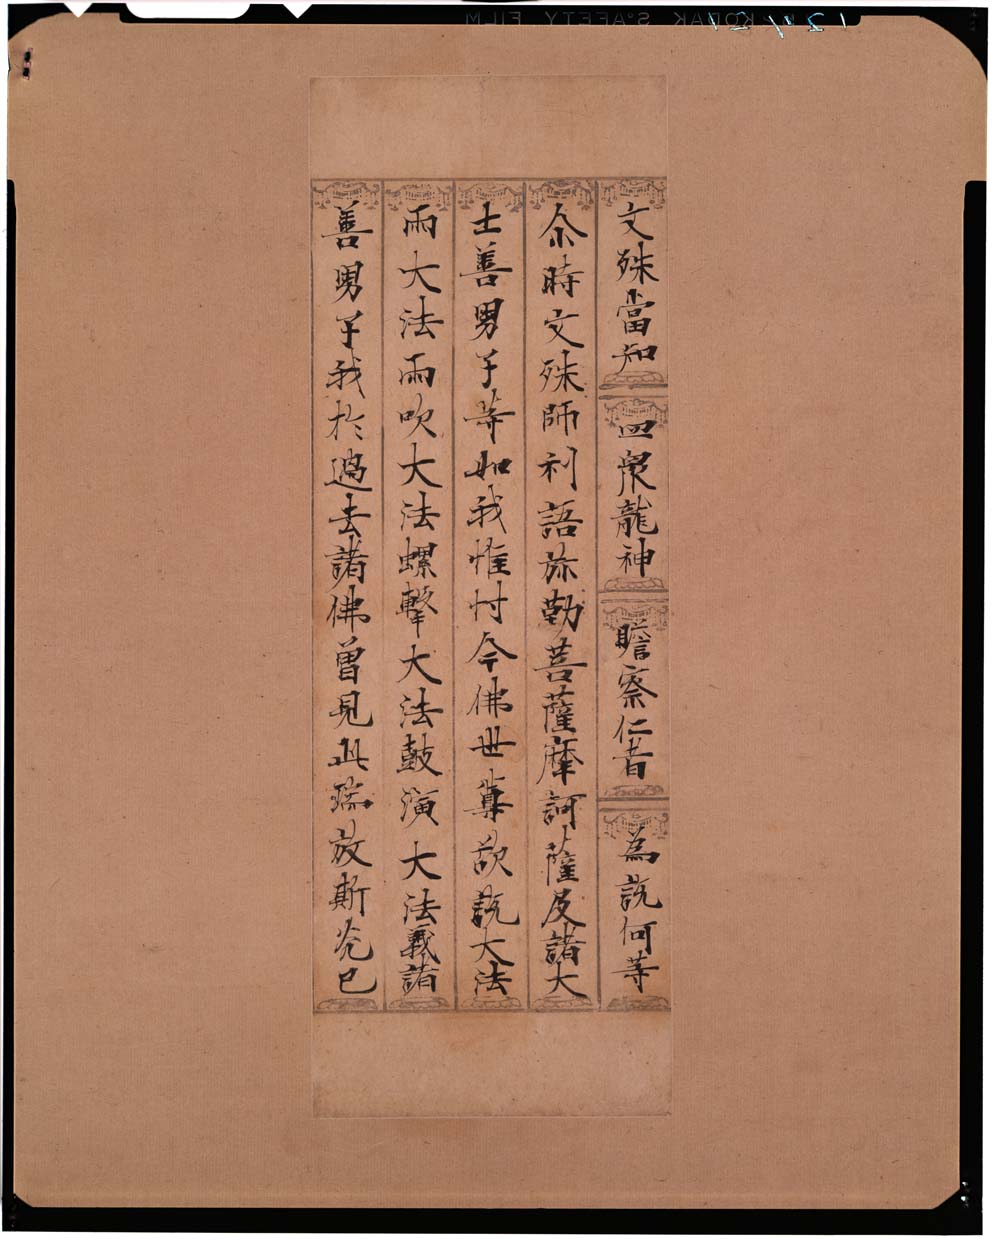 文殊當知 四衆龍神 瞻察仁者 為説何等
尒時文殊師利語弥勒菩薩摩訶薩及諸大
士善男子等如我惟忖今佛世尊欲説大法
雨大法雨吹大法螺擊大法鼓演大法義諸
善男子我於過去諸佛曽見此瑞放斯光已
KODAK SAFETY FILM